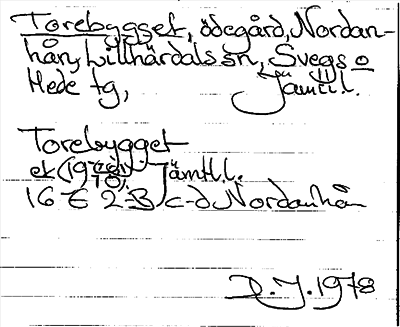 Torebygget, ödegård, Nordan-
hån, Lillhärdals sn, Svegs o
Hede tg, Jämtl.l.
Torebygget
ek (1970), Jämtl.l.
16 E 2-3 c-d Nordanhån
D.J.1978